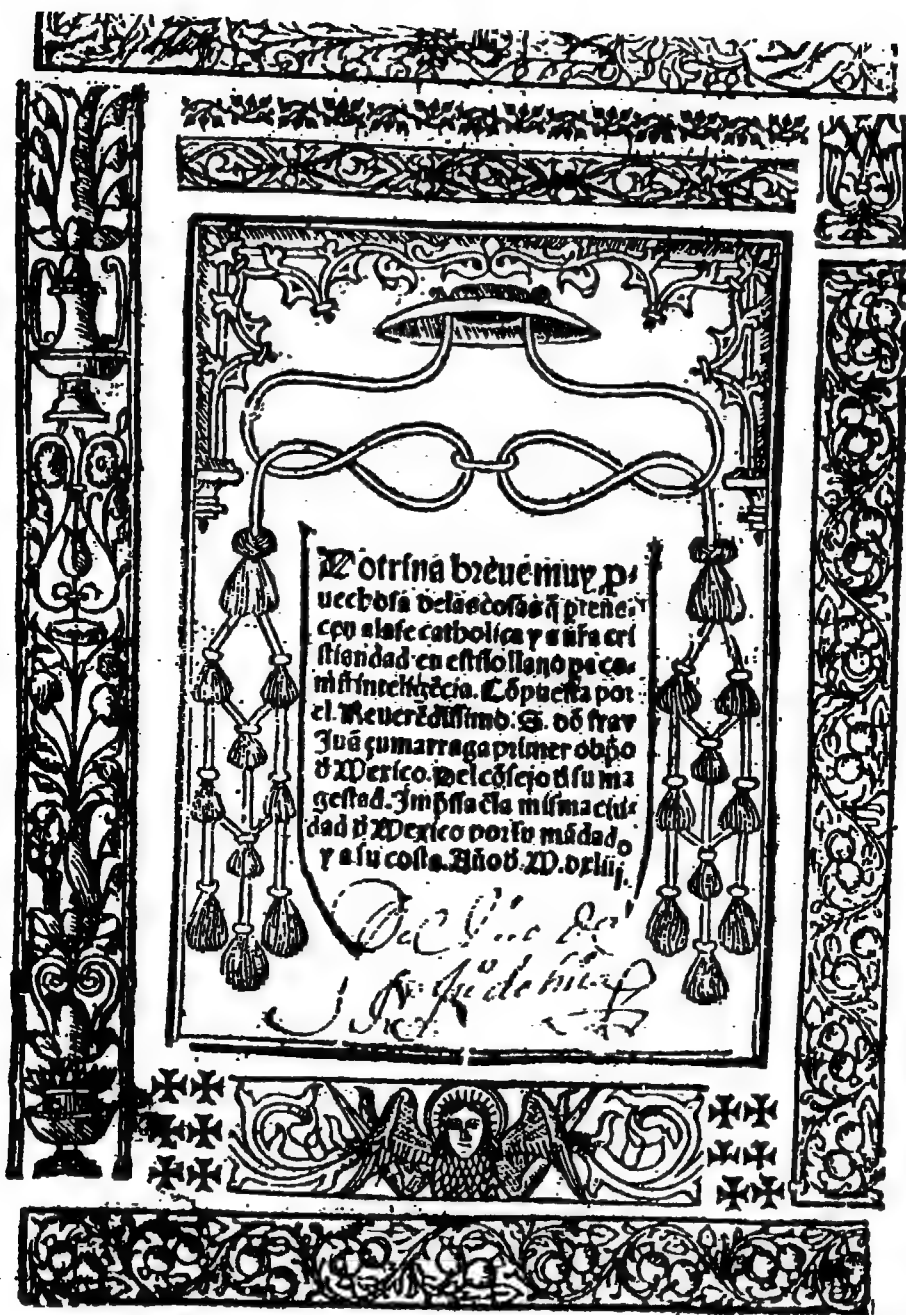 Dotrina breue muy p-
uechosa delas cosas q̃ ptene-
cen a la fe catholica y a nr̃a cri
stiandad en estilo llano pa co-
mũ intelligẽcia. Cõpuesta por
el. Reuerẽdissimo. S. dõ fray
Juã çumarraga primer obp̃o
đ Mexico. Del cõsejo đ su ma
gestad. Imp̃ssa ẽ la misma ciu-
dad đ Mexico por su mãdado
y a su costa. Año đ. M. dxliij.